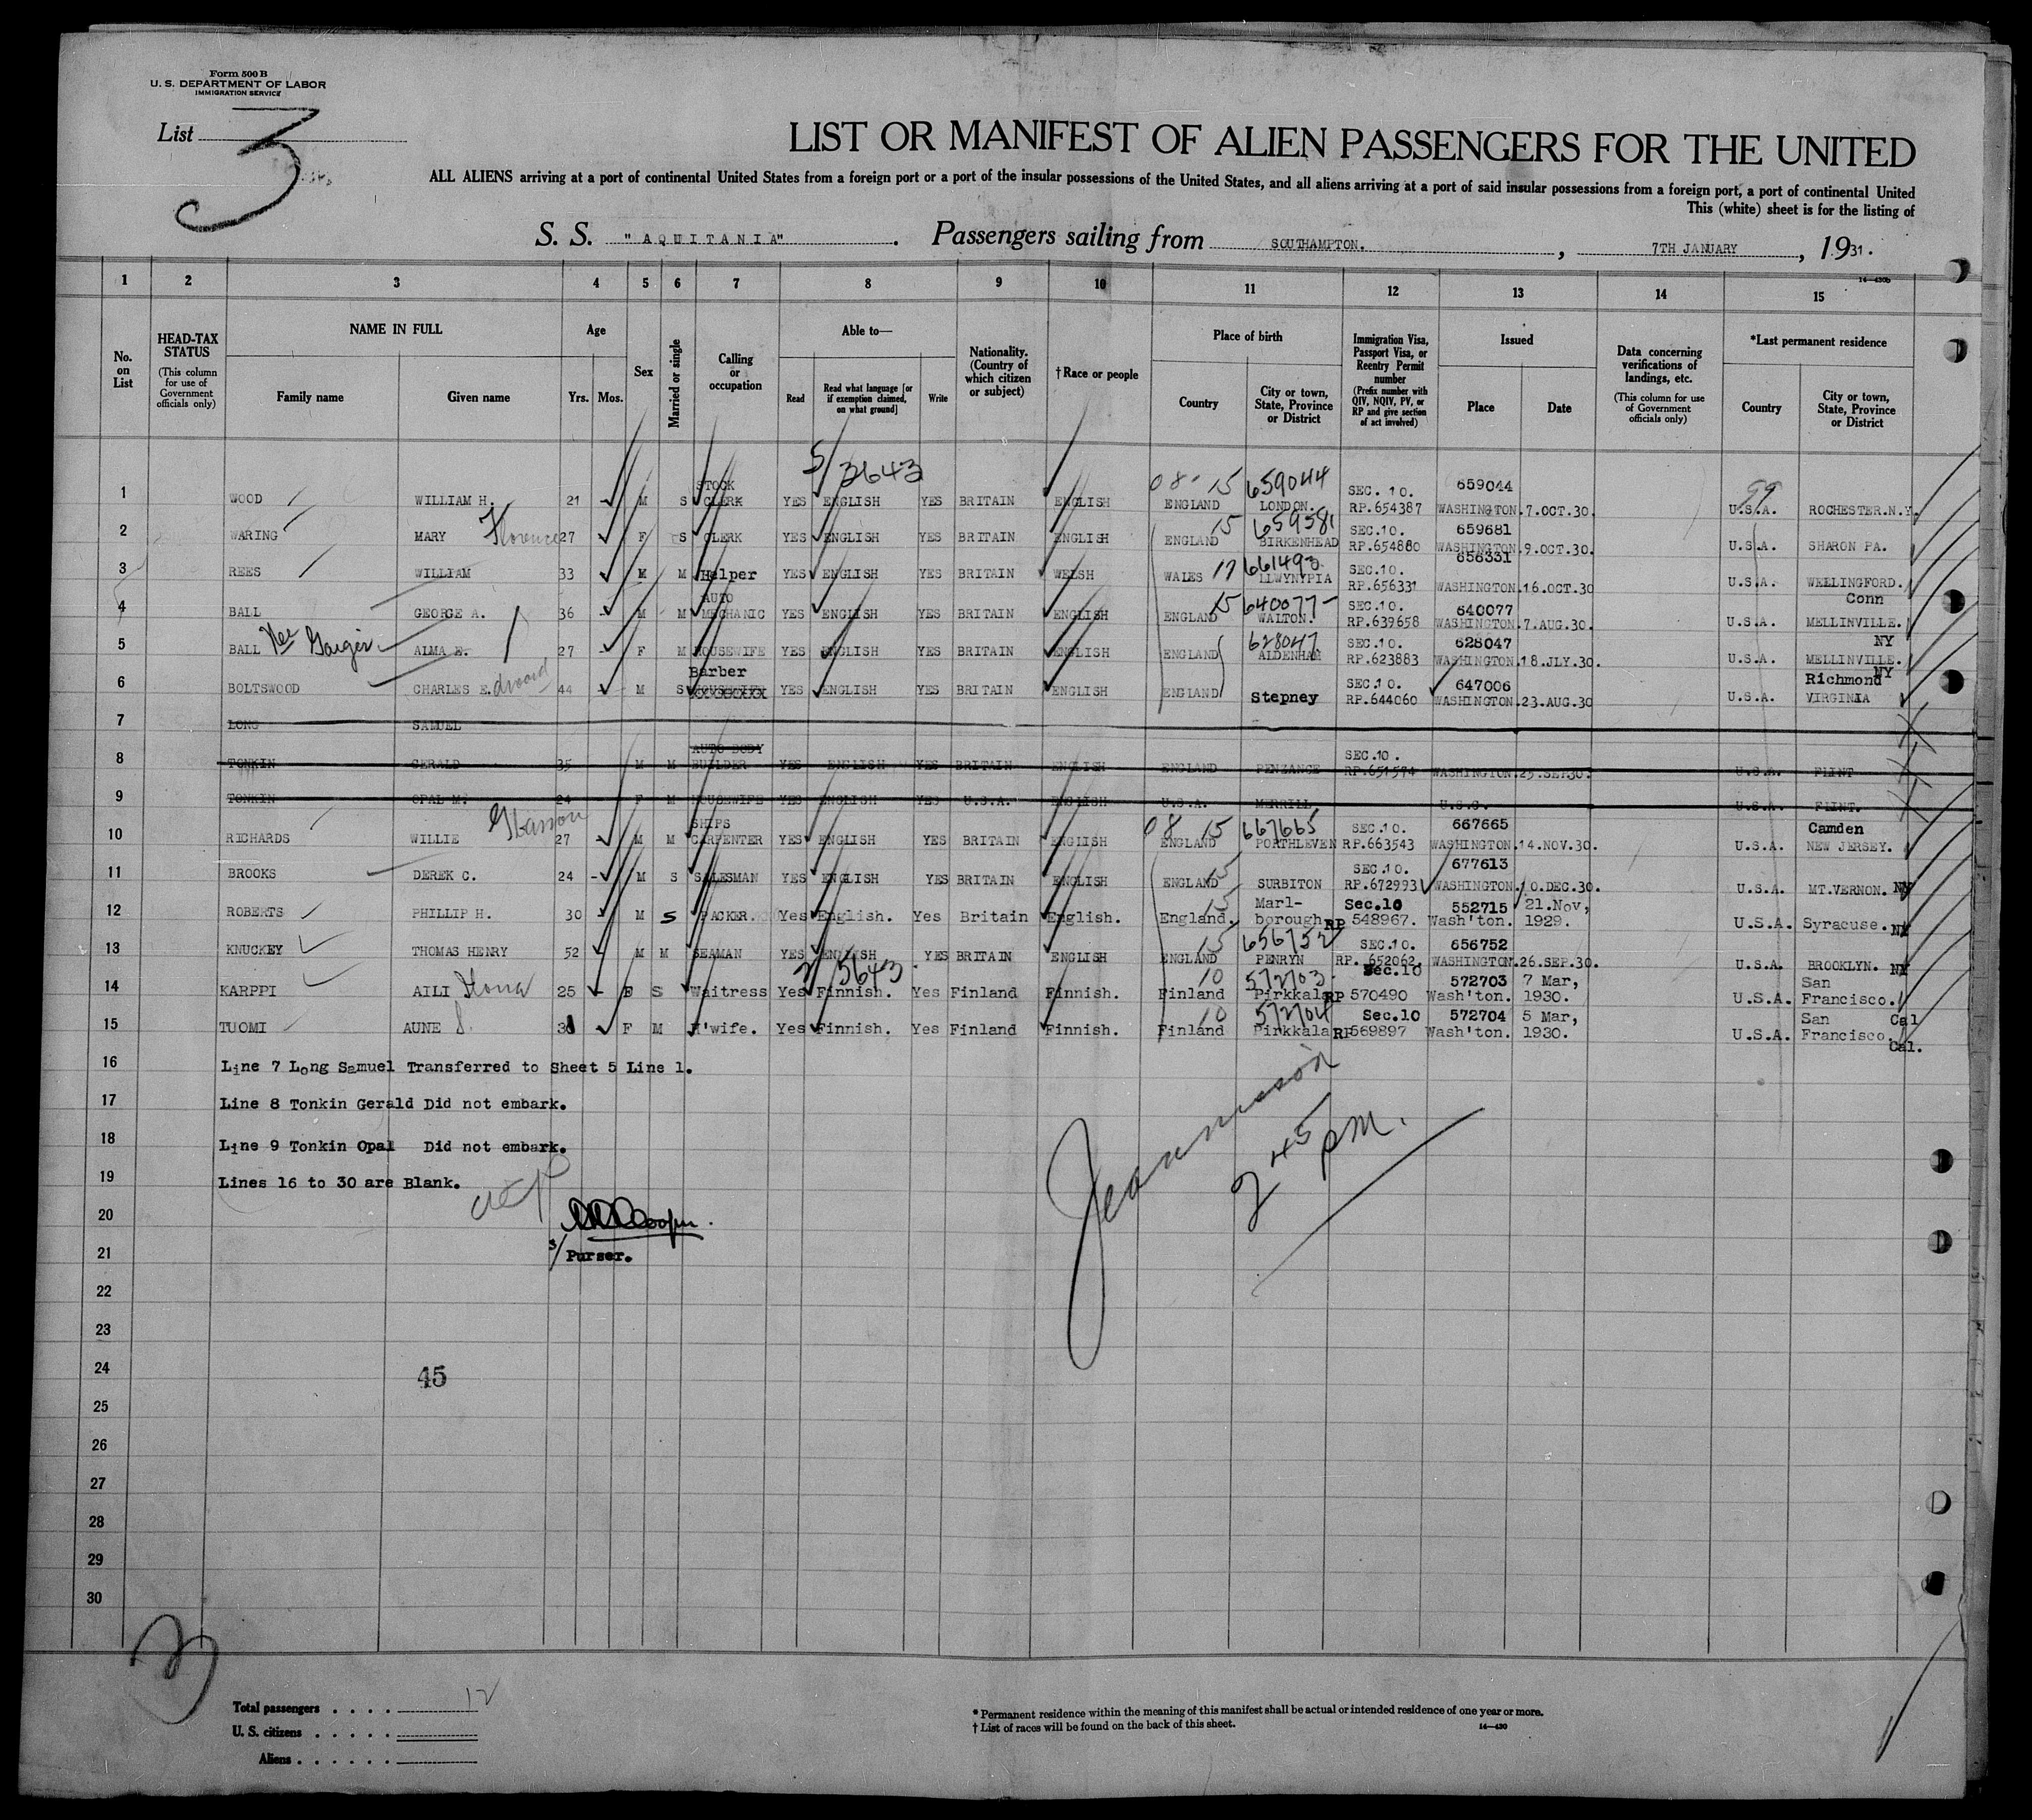 Form 500 B
U. S. DEPARTMENT OF LABOR
IMMIGRATION SERVICE
List 3
LIST OR MANIFEST OF ALIEN PASSENGERS FOR THE UNITED
ALL ALIENS arriving at a port of continental United States from a foreign port or a port of the insular possessions of the United States, and all aliens arriving at a port of said insular possessions from a foreign port, a port of continental United
This (white) sheet is for the listing of
S. S. "AQUITANIA". Passengers sailing from SOUTHAMPTON., 7TH JANUARY, 1931.
14—430b
1 2 3 4 5 6 7 8 9 10 11 12 13 14 15
No. on List
HEAD-TAX STATUS (This column for use of Government officials only)
NAME IN FULL Family name Given name
Age Yrs. Mos.
Sex
Married or single
Calling or occupation
Able to— Read Read what language [or if exemption claimed, on what ground] Write
Nationality. (Country of which citizen or subject)
†Race or people
Place of birth Country City or town, State, Province or District
Immigration Visa, Passport Visa, or Reentry Permit number (Prefix number with QIV, NQIV, PV, or RP and give section of act involved)
Issued Place Date
Data concerning verifications of landings, etc. (This column for use of Government officials only)
*Last permanent residence Country City or town, State, Province or District
5/3643
1 WOOD WILLIAM H. 21 M S STOCK CLERK YES ENGLISH YES BRITAIN ENGLISH 08- 15 ENGLAND 659044 LONDON. SEC. 10. RP.654387 659044 WASHINGTON.7.OCT.30. 99 U.S.A. ROCHESTER.N.Y.
2 WARING MARY Florence 27 F S CLERK YES ENGLISH YES BRITAIN ENGLISH 15 ENGLAND 659581 BIRKENHEAD SEC.10. RP.654880 659681 WASHINGTON.9.OCT.30. U.S.A. SHARON PA.
3 REES WILLIAM 33 M M Helper YES ENGLISH YES BRITAIN WELSH WALES 17 661493 LLWYNYPIA SEC.10. RP.656331 656331 WASHINGTON.16.OCT.30 U.S.A. WELLINGFORD. Conn
4 BALL GEORGE A. 36 M M AUTO MECHANIC YES ENGLISH YES BRITAIN ENGLISH ENGLAND 15 640077- WALTON. SEC.10. RP.639658 640077 WASHINGTON.7.AUG.30. U.S.A. MELLINVILLE. NY
5 BALL Nee ALMA E. 27 F M HOUSEWIFE YES ENGLISH YES BRITAIN ENGLISH ENGLAND 628047 ALDENHAM SEC.10. RP.623883 628047 WASHINGTON.18.JLY.30. U.S.A. MELLINVILLE. NY
6 BOLTSWOOD CHARLES Edward 44 M S Barber YES ENGLISH YES BRITAIN ENGLISH ENGLAND Stepney SEC.10. RP.644060 647006 WASHINGTON.23.AUG.30 U.S.A. Richmond VIRGINIA
7 LONG SAMUEL
8 TONKIN GERALD 35 M M AUTO BODY BUILDER YES ENGLISH YES BRITAIN ENGLISH ENGLAND PENZANCE SEC.10. RP.651574 WASHINGTON.25.SEP.30. U.S.A. FLINT
9 TONKIN OPAL M. 24 F M HOUSEWIFE YES ENGLISH YES U.S.A. ENGLISH U.S.A. MERRILL U.S.C. U.S.A. FLINT.
10 RICHARDS WILLIE 27 M M SHIPS CARPENTER YES ENGLISH YES BRITAIN ENGLISH 08 15 ENGLAND 667665 PORTHLEVEN SEC.10. RP.663543 667665 WASHINGTON.14.NOV.30. U.S.A. Camden NEW JERSEY.
11 BROOKS DEREK C. 24 M S SALESMAN YES ENGLISH YES BRITAIN ENGLISH ENGLAND 15 SURBITON SEC.10. RP.672993 677613 WASHINGTON.10.DEC.30. U.S.A. MT.VERNON. NY
12 ROBERTS PHILLIP H. 30 M S PACKER. Yes English. Yes Britain English. 15 England. Marl-borough Sec.10 RP 548967. 552715 Wash'ton. 21.Nov, 1929. U.S.A. Syracuse. NY
13 KNUCKEY THOMAS HENRY 52 M M SEAMAN YES ENGLISH YES BRITAIN ENGLISH 15 ENGLAND 656752 PENRYN SEC.10. RP. 652062. 656752 WASHINGTON.26.SEP.30. U.S.A. BROOKLYN. NY
2/5643.
14 KARPPI AILI 25 F S Waitress Yes Finnish. Yes Finland Finnish. 10 Finland 572703- Pirkkala Sec.10 RP 570490 572703 Wash'ton. 7 Mar, 1930. U.S.A. San Francisco. Cal
15 TUOMI AUNE F M H'wife. Yes Finnish. Yes Finland Finnish. 10 Finland 572704 Pirkkala Sec.10 RP 569897 572704 Wash'ton. 5 Mar, 1930. U.S.A. San Francisco. Cal.
16 Line 7 Long Samuel Transferred to Sheet 5 Line 1.
17 Line 8 Tonkin Gerald Did not embark.
18 Line 9 Tonkin Opal Did not embark.
19 Lines 16 to 30 are Blank.
2 45 PM.
20
21 Purser.
22
23
24 45
25
26
27
28
29
30
3
Total passengers . . . . 12
U. S. citizens . . . . .
Aliens . . . . . .
* Permanent residence within the meaning of this manifest shall be actual or intended residence of one year or more.
† List of races will be found on the back of this sheet.
14—430